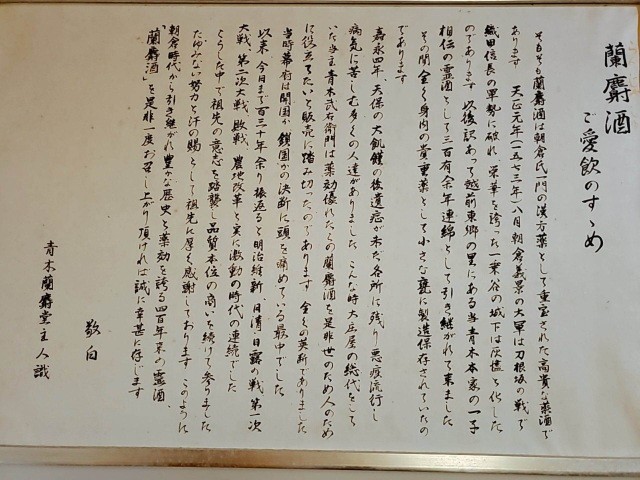 蘭麝酒
ご愛飲のすゝめ
そもそも蘭麝酒は朝倉氏一門の漢方薬として重宝された高貴な薬酒で
あります 天正元年(一五七三年)八月朝倉義景の大軍は刀根坂の戦で
織田信長の軍勢に破れ、栄華を誇った一乗谷の城下は灰燼と化した
のであります 以後訳あって越前東郷の里にある当青木本家の一子
相伝の霊酒として三百有余年連綿として引き継がれて来ました
その間全く身内の貴重薬として小さな甕に製造保存されていたの
であります
嘉永四年、天保の大飢饉の後遺症が未だ各所に残り悪疫流行し
病気に苦しむ多くの人達がありました こんな時大庄屋の総代をして
いた当主青木武右衛門は薬効優れたこの蘭麝酒を是非世のため人のため
に役立てたいと販売に踏み切ったのであります 全くの英断でありました
当時幕府は開国か鎖国かの決断に頭を痛めている最中でした
以来今日まで百三十年余り振返ると明治維新 日清・日露の戦、第一次
大戦、第二次大戦、敗戦、農地改革と実に激動の時代の連続でした
こうした中で祖先の意志を踏襲し品質本位の商いを続けて参りました
たゆみない努力と汗の賜として祖先に厚く感謝しております このように
朝倉時代から引き継がれ豊かな歴史と薬効を誇る四百年来の霊酒
「蘭麝酒」を是非一度お召し上がり頂ければ誠に幸甚に存じます
敬白
青木蘭麝堂主人識